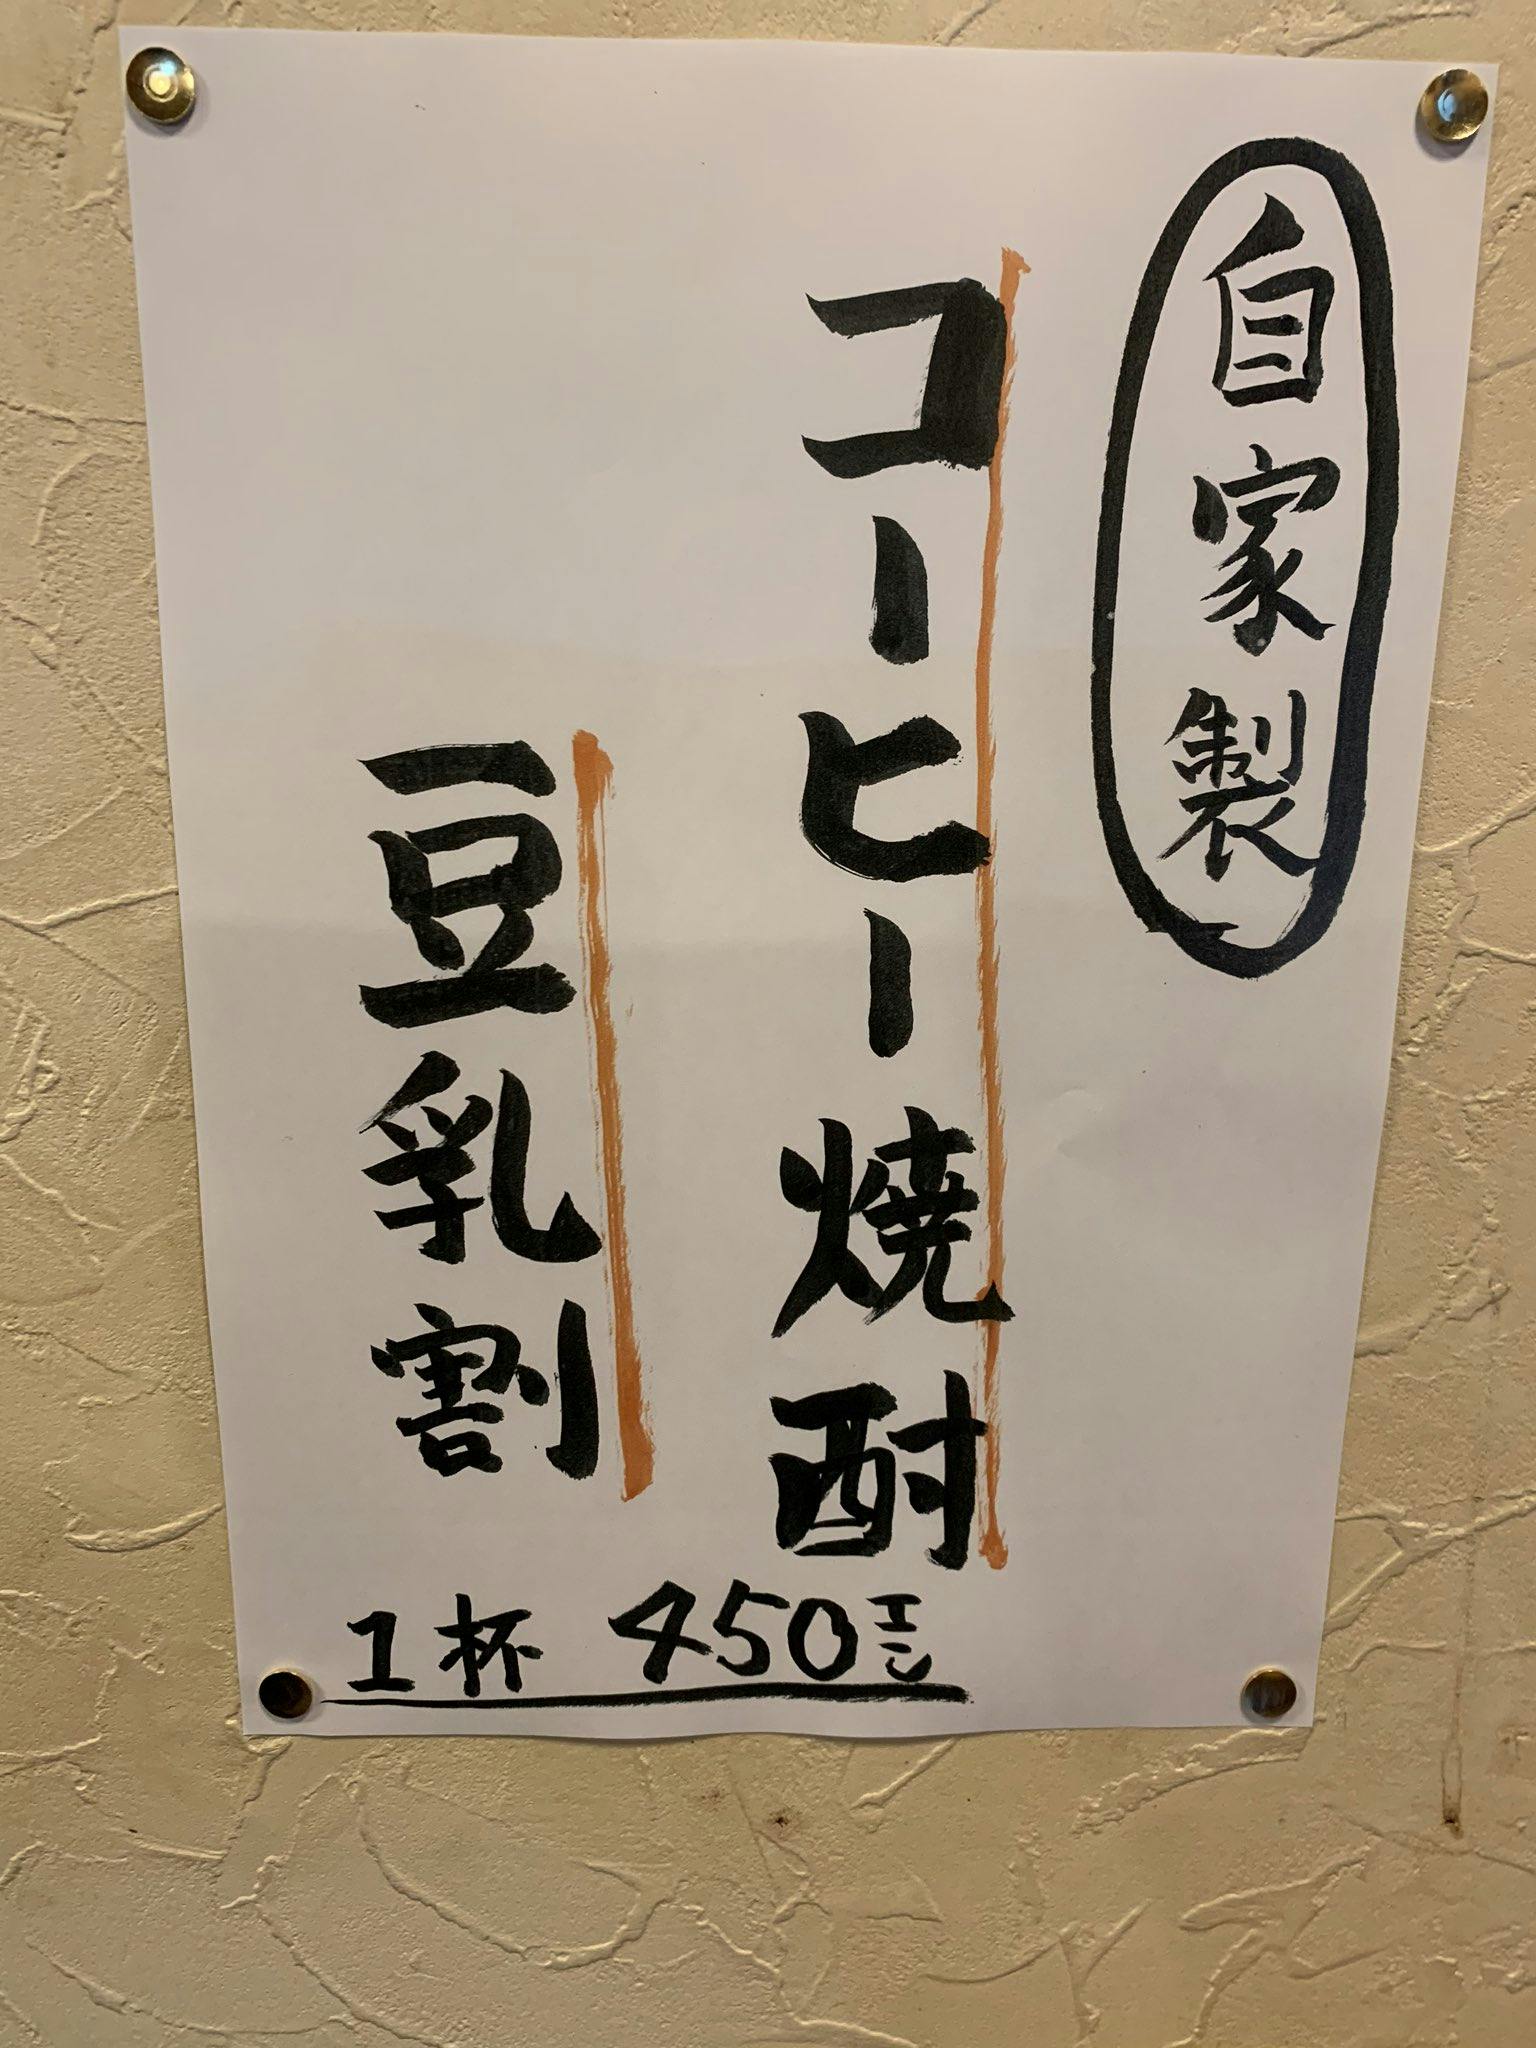 自家製
コーヒー焼酎
豆乳割
1杯 450エン